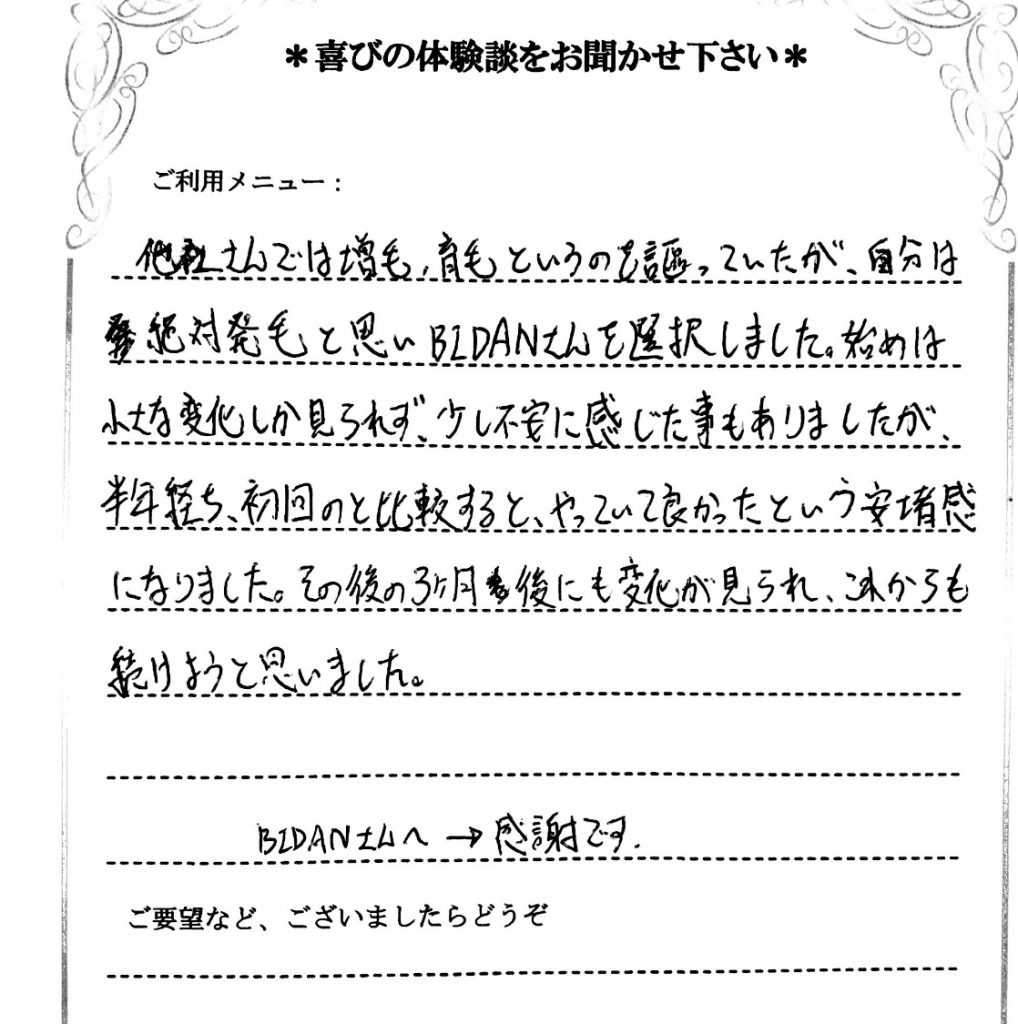 ＊喜びの体験談をお聞かせ下さい＊
ご利用メニュー：
他社さんでは増毛、育毛というのを謳っていたが、自分は
絶対発毛と思いBIDANさんを選択しました。始めは
小さな変化しか見られず、少し不安に感じた事もありましたが、
半年経ち、初回のと比較すると、やっていて良かったという安堵感
になりました。その後の3ヶ月後にも変化が見られ、これからも
続けようと思いました。
BIDANさんへ→感謝です.
ご要望など、ございましたらどうぞ